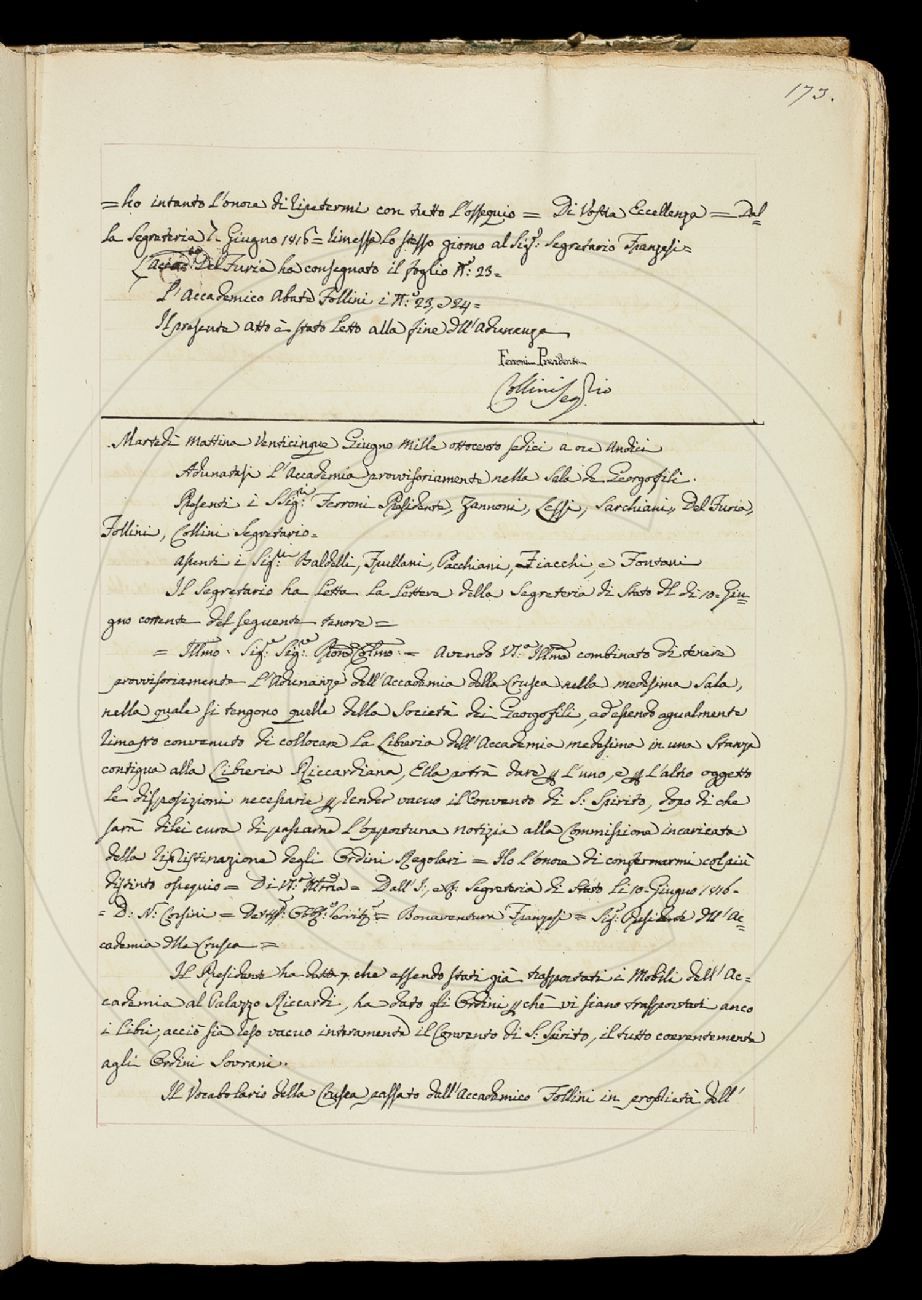 173.
= ho intanto l'onore di ripetermi con tutto l'ossequio = Di Vostra Eccellenza = Dal=
la Segreteria 7. Giugno 1816 = rimessa lo stesso giorno al Sig.r Segretario Franzesi =
Del Furia ha consegnato il foglio N.o 23 =
L'Accademico Abate Follini i N.o 23, e 24 =
Il presente atto è stato letto alla fine dell'Adunanza
Ferroni Presidente
Collini Seg.rio
Martedì mattina Venticinque Giugno Mille ottocento sedici a ore Undici
Adunatasi l'Accademia provvisoriamente nella Sala de Georgofili.
Presenti i SSig.ri Ferroni Presidente, Zannoni, Lessi, Sarchiani, Del Furia,
Follini, Collini Segretario =
assenti i Sig.ri Baldelli, Fiacchi, e Fontani
Il Segretario ha letta la Lettera della Segreteria di Stato del dì 10. Giu=
gno corrente del seguente tenore =
= Illmo. Sig.e Sig.e Pron Colmo. = Avendo V.S. Illma combinato di tenere
provvisoriamente l'Adunanze dell'Accademia della Crusca nella medesima Sala,
nella quale si tengono quelle della Società dei Georgofili, ed essendo egualmente
rimasto convenuto di collocare la Libreria dell'Accademia medesima in una Stanza
contigua alla Libreria Riccardiana, Ella potrà dare p l'uno, e p l'altro oggetto
le disposizioni necessarie p render vacuo il Convento di S. Spirito, dopo di che
sarà di lei cura di passarne l'opportuna notizia alla Commissione incaricata
della ripristinazione degli Ordini Regolari = Ho l'onore di confermarmi col più
distinto ossequio = Di V.S. Illma = Dall'I., e R. Segreteria di Stato li 10. Giugno 1816 =
= D. N. Corsini = = Bonaventura Franzesi = Sig.r Presidente dell'Ac=
cademia della Crusca =
Il Presidente ha detto, che essendo stati già trasportati i Mobili dell'Ac=
cademia al Palazzo Riccardi, ha dato gli Ordini pchè vi siano trasportati anco
i Libri, acciò sia reso vacuo interamente il Convento di S. Spirito, il tutto coerentemente
agli Ordini Sovrani.
Il Vocabolario della Crusca passato dall'Accademico Follini in proprietà dell'